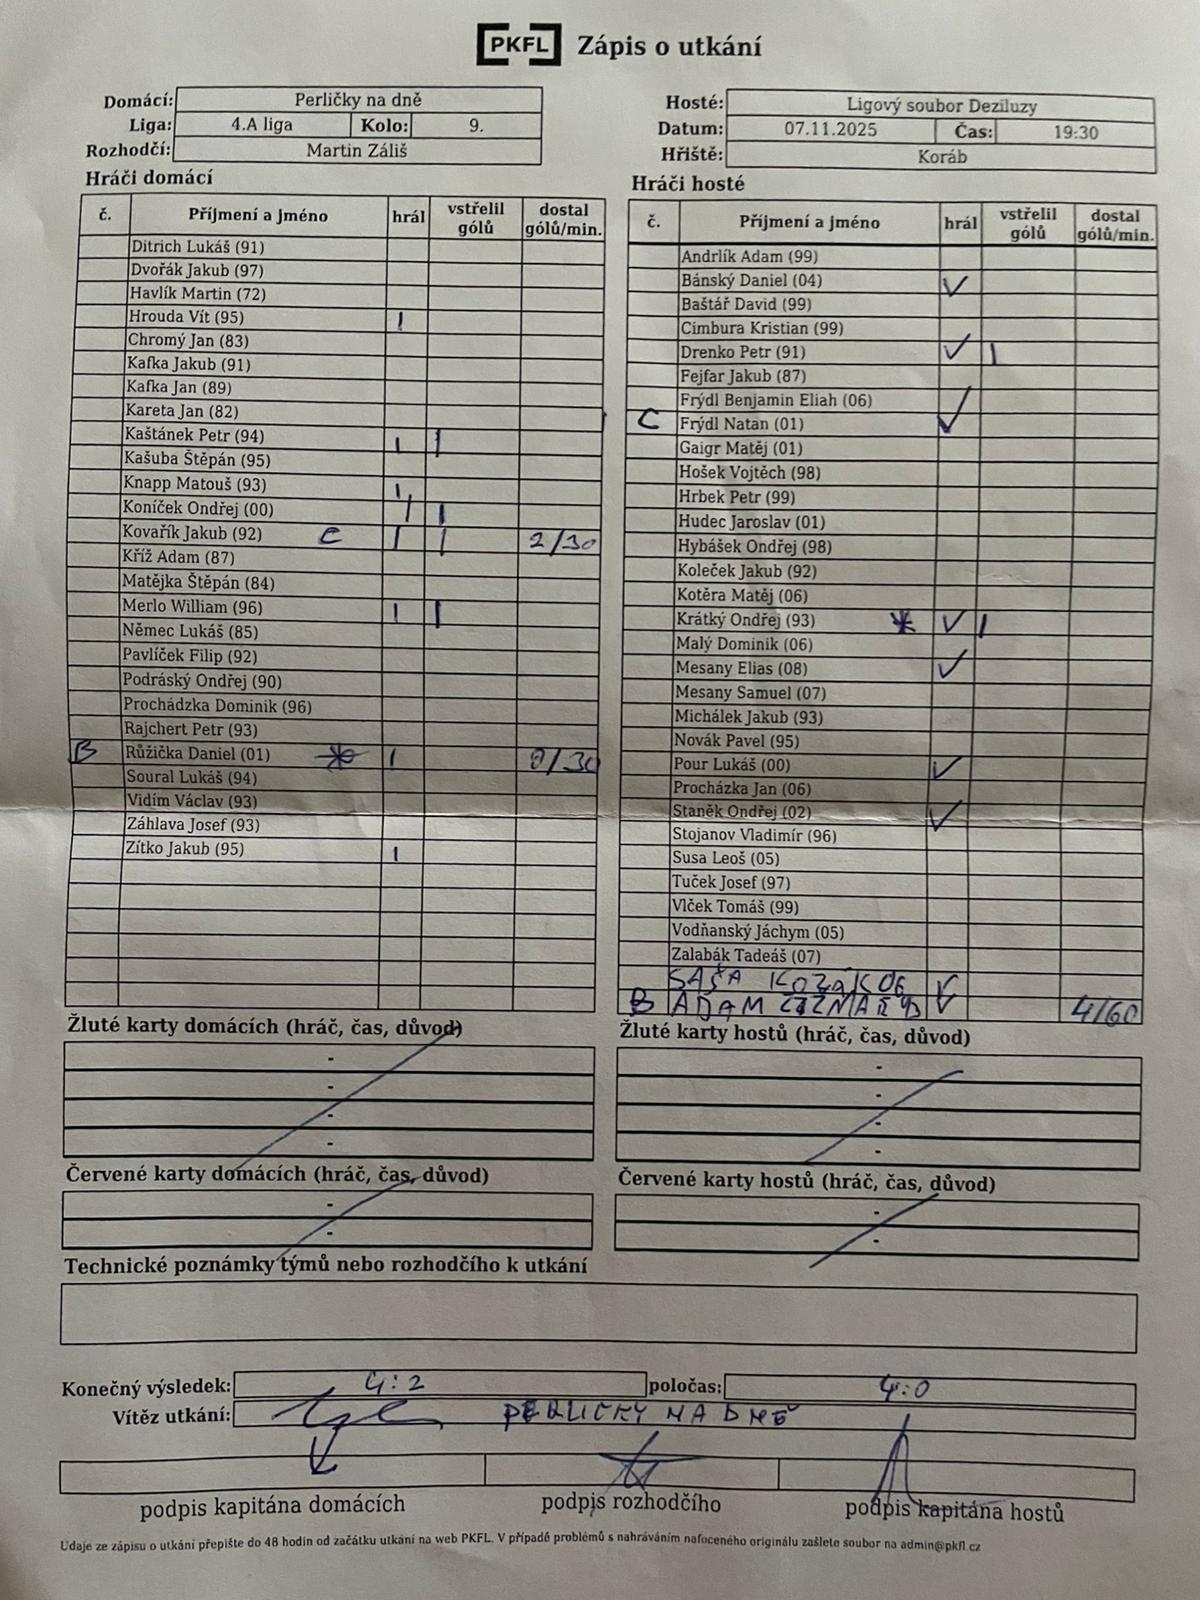 PKFL Zápis o utkání
Domácí: Perličky na dně
Liga: 4.A liga Kolo: 9.
Rozhodčí: Martin Záliš
Hosté: Ligový soubor Deziluzy
Datum: 07.11.2025 Čas: 19:30
Hřiště: Koráb
Hráči domácí
č. Příjmení a jméno hrál vstřelil gólů dostal gólů/min.
Ditrich Lukáš (91)
Dvořák Jakub (97)
Havlík Martin (72)
Hrouda Vít (95) |
Chromý Jan (83)
Kafka Jakub (91)
Kafka Jan (89)
Kareta Jan (82)
Kaštánek Petr (94) | |
Kašuba Štěpán (95)
Knapp Matouš (93) |
Koníček Ondřej (00) | |
Kovařík Jakub (92) C | | 2/30
Kříž Adam (87)
Matějka Štěpán (84)
Merlo William (96) | |
Němec Lukáš (85)
Pavlíček Filip (92)
Podráský Ondřej (90)
Procházka Dominik (96)
Rajchert Petr (93)
B Růžička Daniel (01) * | 0/30
Soural Lukáš (94)
Vidím Václav (93)
Záhlava Josef (93)
Zítko Jakub (95) |
Hráči hosté
č. Příjmení a jméno hrál vstřelil gólů dostal gólů/min.
Andrlík Adam (99)
Bánský Daniel (04) ✓
Baštář David (99)
Cimbura Kristian (99)
Drenko Petr (91) ✓ |
Fejfar Jakub (87)
Frýdl Benjamin Eliah (06)
C Frýdl Natan (01) ✓
Gaigr Matěj (01)
Hošek Vojtěch (98)
Hrbek Petr (99)
Hudec Jaroslav (01)
Hybášek Ondřej (98)
Koleček Jakub (92)
Kotěra Matěj (06)
Krátký Ondřej (93) * ✓ |
Malý Dominik (06)
Mesany Elias (08) ✓
Mesany Samuel (07)
Michálek Jakub (93)
Novák Pavel (95)
Pour Lukáš (00) ✓
Procházka Jan (06)
Staněk Ondřej (02) ✓
Stojanov Vladimír (96)
Susa Leoš (05)
Tuček Josef (97)
Vlček Tomáš (99)
Vodňanský Jáchym (05)
Zalabák Tadeáš (07)
SAŠA ✓
B ADAM ✓ 4/60
Žluté karty domácích (hráč, čas, důvod)
-
-
-
-
Žluté karty hostů (hráč, čas, důvod)
-
-
-
-
Červené karty domácích (hráč, čas, důvod)
-
-
Červené karty hostů (hráč, čas, důvod)
-
-
Technické poznámky týmů nebo rozhodčího k utkání
Konečný výsledek: 4:2 poločas: 4:0
Vítěz utkání: PERLIČKY NA DNĚ
podpis kapitána domácích podpis rozhodčího podpis kapitána hostů
Údaje ze zápisu o utkání přepište do 48 hodin od začátku utkání na web PKFL. V případě problémů s nahráváním nafoceného originálu zašlete soubor na admin@pkfl.cz